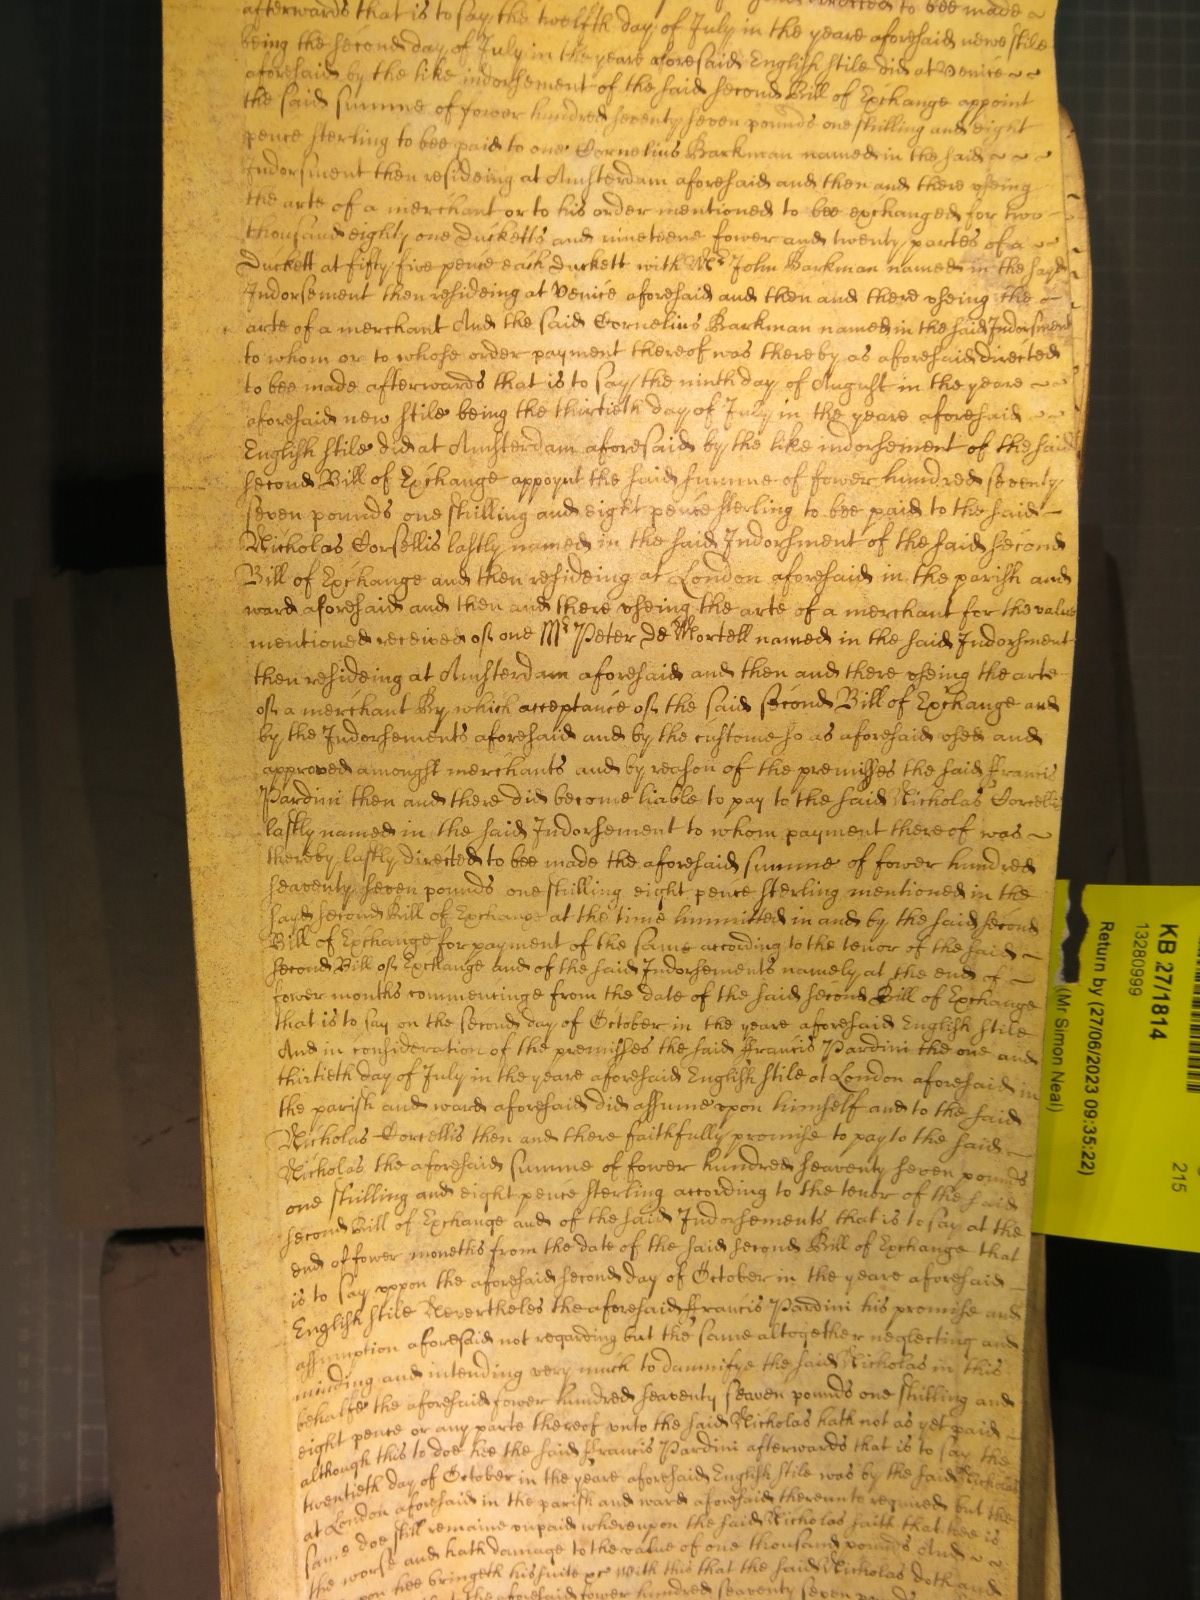 afterwards that is to say the twelfth day of July in the yeare aforesaid newe stile
being the second day of July in the yeare aforesaid English stile did at Venice
aforesaid by the like indorsement of the said second Bill of Exchange appoint
the said summe of fower hundred seventy seven pounds one shilling and eight
pence sterling to bee paid to one Cornelius Barkman named in the said
Indorsment then resideing at Amsterdam aforesaid and then and there useing
the arte of a merchant or to his order mentioned to bee exchanged for two
thousand eighty one Ducketts and nineteene fower and twenty partes of a
Duckett at fifty five pence each Duckett with Mr John Barkman named in the sayd
Indorsement then resideing at Venice aforesaid and then and there vseing the
arte of a merchant And the said Cornelius Barkman named in the said Indorsment
to whom or to whose order payment thereof was thereby as aforesaid directed
to bee made afterwards that is to say the ninth day of August in the yeare
aforesaid new stile being the thirtieth day of July in the yeare aforesaid
English stile did at Amsterdam aforesaid by the like indorsement of the said
second Bill of Exchange appoynt the said summe of fower hundred seventy
seven pounds one shilling and eight pence sterling to bee paid to the said
Nicholas Corsellis lastly named in the said Indorshment of the said second
Bill of Exchange and then resideing at London aforesaid in the parish and
ward aforesaid and then and there vseing the arte of a merchant for the value
mentioned received of one Mr Peter de Mortell named in the said Indorshment
then resideing at Amsterdam aforesaid and then and there vseing the arte
of a merchant By which acceptance of the said second Bill of Exchange and
by the Indorsements aforesaid and by the custome so as aforesaid vsed and
approved amongst merchants and by reason of the premisses the said Francis
Pardini then and there did become liable to pay to the said Nicholas Corcellis
lastly named in the said Indorsement to whom payment thereof was
thereby lastly directed to bee made the aforesaid summe of fower hundred
seaventy seven pounds one shilling eight pence sterling mentioned in the
sayd second Bill of Exchange at the time limmitted in and by the said second
Bill of Exchange for payment of the same according to the tenor of the said
second Bill of Exchange and of the said Indorsements namely at the end of
fower months commencinge from the date of the said second Bill of Exchange
that is to say on the second day of October in the yeare aforesaid English stile
And in consideration of the premisses the said Francis Pardini the one and
thirtieth day of July in the yeare aforesaid English stile at London aforesaid in
the parish and ward aforesaid did assume upon himself and to the said
Nicholas Corcellis then and there faithfully promise to pay to the said
Nicholas the aforesaid summe of fower hundred seaventy seven pounds
one shilling and eight pence sterling according to the tenor of the said
second Bill of Exchange and of the said Indorsements that is to say at the
end of fower moneths from the date of the said second Bill of Exchange that
is to say uppon the aforesaid second day of October in the yeare aforesaid
English stile Nevertheles the aforesaid Francis Pardini his promise and
assumption aforesaid not regarding but the same altogether neglecting and
minding and intending very much to damnifye the said Nicholas in this
behalfe the aforesaid fower hundred seaventy seaven pounds one shilling and
eight pence or any parte thereof unto the said Nicholas hath not as yet paid
although this to doe hee the said Francis Pardini afterwards that is to say the
twentieth day of October in the yeare aforesaid English stile was by the said Nicholas
at London aforesaid in the parish and ward aforesaid thereunto required but the
same doe still remaine unpaid whereupon the said Nicholas saith that hee is
the worse and hath damage to the value of one thousand pounds And
hee bringeth his suite &c With this that the said Nicholas doth and
the aforesaid fower hundred seaventy seven
KB 27/1814
13280999
Return by (27/06/2023 09:35:22)
(Mr Simon Neal)
215